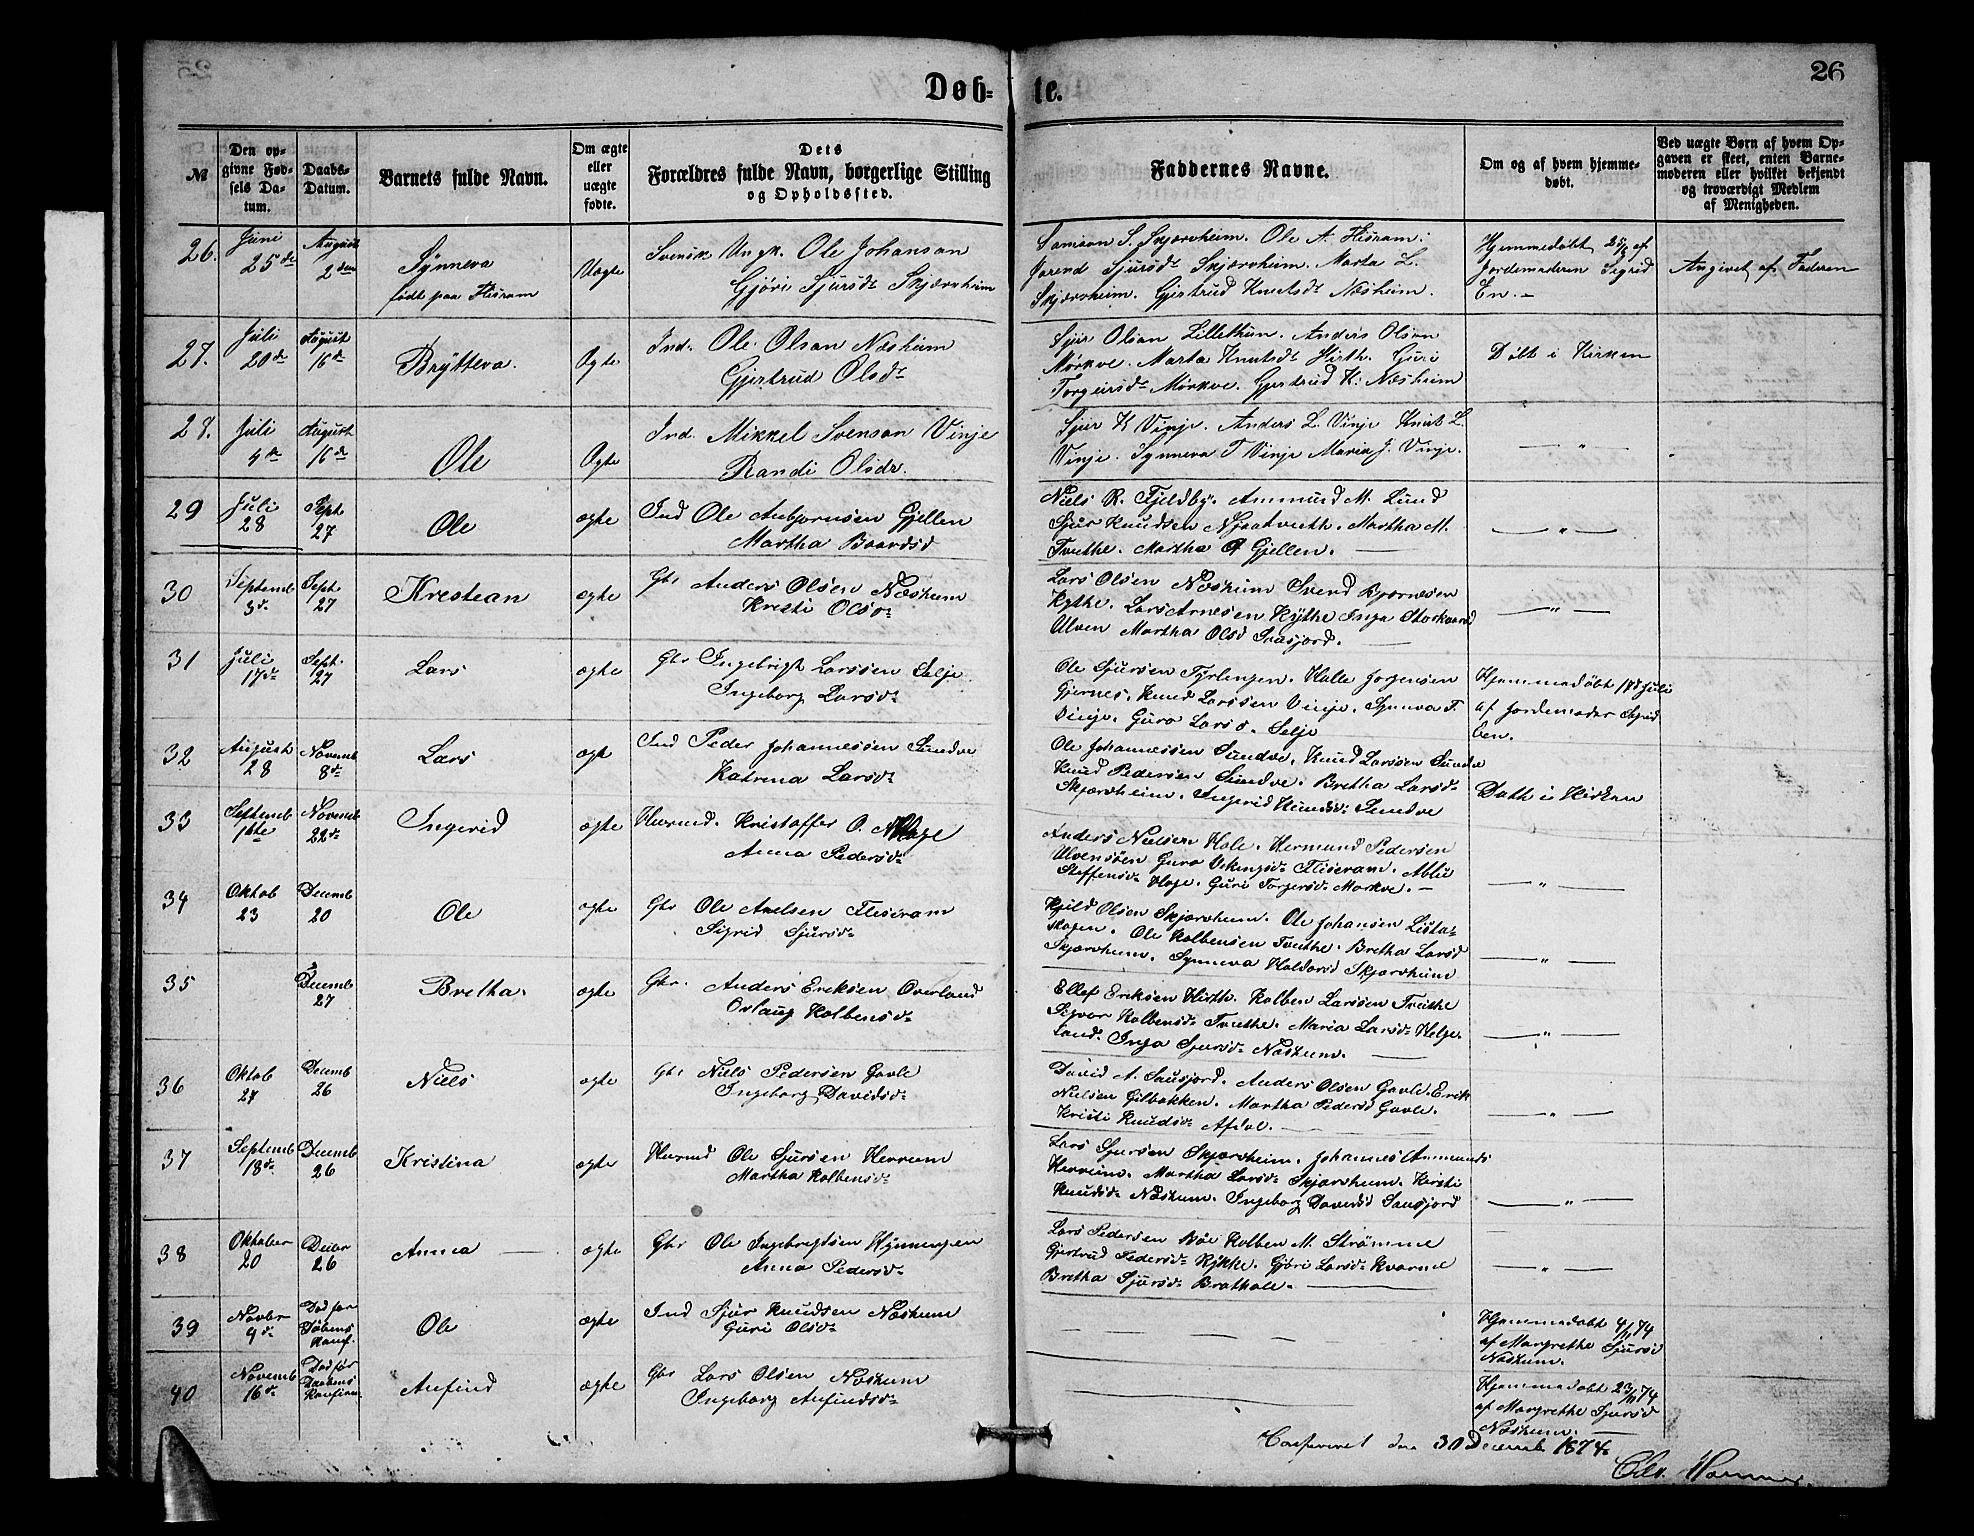 26
Døb-
te.
№
Den op-
givne Fød-
sels Da-
tum.
Daabs-
Datum.
Barnets fulde Navn.
Om ægte
eller
uægte
fødte.
Dets
Forældres fulde Navn, borgerlige Stilling
og Opholdssted.
Faddernes Navne.
Om og af hvem hjemme-
døbt.
Ved uægte Børn af hvem Op-
gaven er skeet, enten Barne-
moderen eller hvilket bekjendt
og troværdigt Medlem
af Menigheden.
26.
Juni
25de
August
2den
Synneva
født paa Flisram
Uægte
Svensk Ungk. Ole Johanson
Gjøri Sjursdr Skjærvheim
Samson S. Skjærvheim. Ole A. Flisram.
Sjursdr Skjærvheim. Marta L.
Skjærvheim. Gjertrud Knutsdr Næsheim.
Hjemmedøbt af
Jordemoderen Sigrid
En. -
Angivet af Faderen
27.
Juli
20de
August
16de
Brytteva.
Ægte
Ind. Ole Olson Næsheim
Gjertrud Olsdr
Sjur Olson Lillethun. Anders Olson
Mørkve. Marta Knutsdr Hirth. Guri
Torgeirsdr Mørkve. Gjertrud K. Næsheim
Døbt i Kirken
28.
Juli
4de
August
16de
Ole
Ægte
Ind. Mikkel Svenson Vinje
Randi Olsdr.
Sjur K Vinje. Anders L. Vinje Knut L.
Vinje. Synneva T Vinje Maria J. Vinje.
— " —
29
Juli
28
Sept
27
Ole
ægte
Ind Ole Anbjørnsen Gjellen
Martha Baardsd
Niels R. Fjeldby. Ammund M. Lund
Sjur Knudsen Martha M.
Tvethe. Martha Gjellen. —
— " —
30
Septemb
3d.
Sept
27
Krestean
ægte
Gbr Anders Olsen Næsheim
Kristi Olsd.
Lars Olsen Næsheim Svend Bjørnesen
Kythe. Lars Arnesen Kythe Inga
Ulven Martha Olsd Sausjord. —
— " —
31
Juli
17d.
Sept.
27
Lars
ægte
Gbr Ingebrigt Larssen Selje
Ingeborg Larsd.
Ole Sjursen Tyrlengen. Halle Jorgensen
Gjernes. Knud Larssen Vinje. Synnva T.
Vinje. Guro Larsd. Selje
Hjemmedøbt 18d Juli
af Jordemoder Sigrid
32
August
28
Novemb
8d.
Lars
ægt
Ind Peder Johannessen Sundve
Katrina Larsd.
Ole Johannessen Sundve. Knud Larssen Sundve
Knud Pedersen Sundve. Bretha Larsd.
Skjærvheim. Ingerid Knudsd. Sundve
Døbt i Kirken
33
Septemb
1ste
Novemb
22d.
Ingerid
ægte
Husmd. Kristoffer O.
Anna Pedersd.
Anders Nielsen Hole. Hermund Pedersen
Ulvensøen Guro Vikingsd. Fliseram.
Steffensd. Guri Torgersd. Mørkve. —
— " —
34
Oktob
23
Decemb
20
Ole
ægte
Gbr Ole Axelsen Fliseram
Sigrid Sjursd.
Kjeld Olsen Skjærvheim. Ole Johansen
Ole Kolbensen Tvethe. Bretha Larsd
Skjærvheim. Synneva Haldorsd Skjærvheim
— " —
35
Decemb
27
Bretha.
ægte
Gbr. Anders Eriksen Øverland
Orlaug Kolbensd.
Ellef Eriksen Hirth. Kolben Larssen Tvethe
Sigvor Kolbensd. Tvethe. Maria Larsd. Helge-
Land. Inga Sjursd. Næsheim. —
— " —
36
Oktob
27
Decemb
26
Niels
ægte
Gbr Niels Pedersen Gavle
Ingeborg Davidsd.
David A. Sausjord. Anders Olsen Gavle. Erik
Nielsen Gilbakken. Martha Pedersd Gavle.
Kristi Knudsd. Afdal. —
— " —
37
Septemb
18d.
Decemb
26
Kristina
ægte
Husmd Ole Sjursen Herreim
Martha Kolbensd.
Lars Sjursen Skjærvheim. Johannes Ammunds
Herreim. Martha Larsd. Skjærvheim. Kirsti
Knudsd. Næsheim. Ingeborg Davidsd Sausjord
— " —
38
Oktober
20
Decbr
26
Anna —
ægte
Gbr Ole Ingebrigtsen
Anna Pedersd.
Lars Pedersen Bøe Kolben M. Strømme
Gjertrud Pedersd. Rykke. Gjøri Larsd. Kvarme
Bretha Sjursd. Brathole. —
— " —
39
Novbr
9d.
Død før
Døbens
Ole
ægte
Ind Sjur Knudsen Næsheim
Guri Olsd.
— — — —
Hjemmedøbt
af Margrethe Sjursd
Næsheim.
40
Novemb
16d.
Død før
Daabens
Anfind
ægte
Gbr Lars Olsen Næsheim
Ingeborg Anfindsd.
Hjemmedøbt 23/11 74
af Margrethe Sjursd
Næsheim. —
Confereret den 30 Decemb 1874.